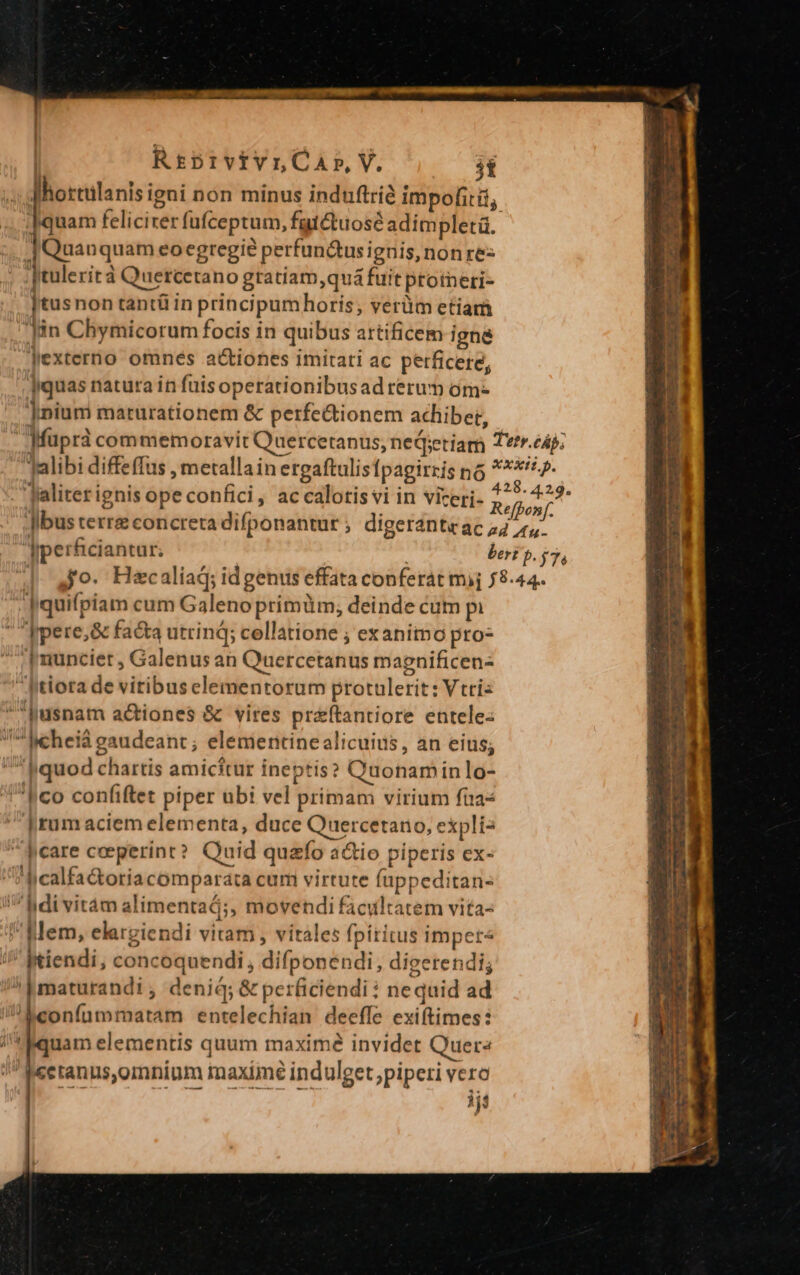 REDIVIVI, CAP, V. 31
hortulanis igni non minus induſtriè impoſitū,
quam feliciter ſuſceptum, fructuosè adimpletū.
Quanquam eo egregiè perfunctus ignis, non re-
tulerit à Quercetano gratiam, quâ fuit promeri-
tus non tantū in principum horis, verùm etiam
in Chymicorum focis in quibus artificem igne
externo omnes actiones imitari ac perficere,
quas natura in ſuis operationibus ad rerum om-
nium maturationem & perfectionem adhibet,
ſuprà commemoravit Quercetanus, neq; etiam Tetr. cap.
alibi diffeſſus, metalla in ergaſtulis ſpagiricis nō xxxii. p.
aliter ignis ope confici, ac caloris vi in viſceri- 428. 429.
bus terræ concreta diſponantur, digerantur ac Reſponſ. ad Au-
perficiantur. bert p. 57,
50. Hæc aliaq; id genus effata conferat mihi 58. 44.
quiſpiam cum Galeno primùm, deinde cum pi
pere, & facta utrinq; collatione, ex animo pro-
nunciet, Galenus an Quercetanus magnificen-
tiora de viribus elementorum protulerit: Vtri-
usnam actiones & vires præſtantiore entele-
cheiâ gaudeant; elementine alicuius, an eius,
quod chartis amicîtur ineptis? Quonam in lo-
co conſiſtet piper ubi vel primam virium ſua-
rum aciem elementa, duce Quercetano, expli-
care cœperint? Quid quæſo actio piperis ex-
calfactoria comparata cum virtute ſuppeditan-
di vitam alimentaq;, movendi facultatem vita-
lem, elargiendi vitam, vitales ſpiritus imper-
tiendi, concoquendi, diſponendi, digerendi,
maturandi, deniq; & perficiendi: nequid ad
conſummatam entelechian deeſſe exiſtimes:
quam elementis quum maximè invidet Quer-
cetanus, omnium maximè indulget, piperi vero
ijs